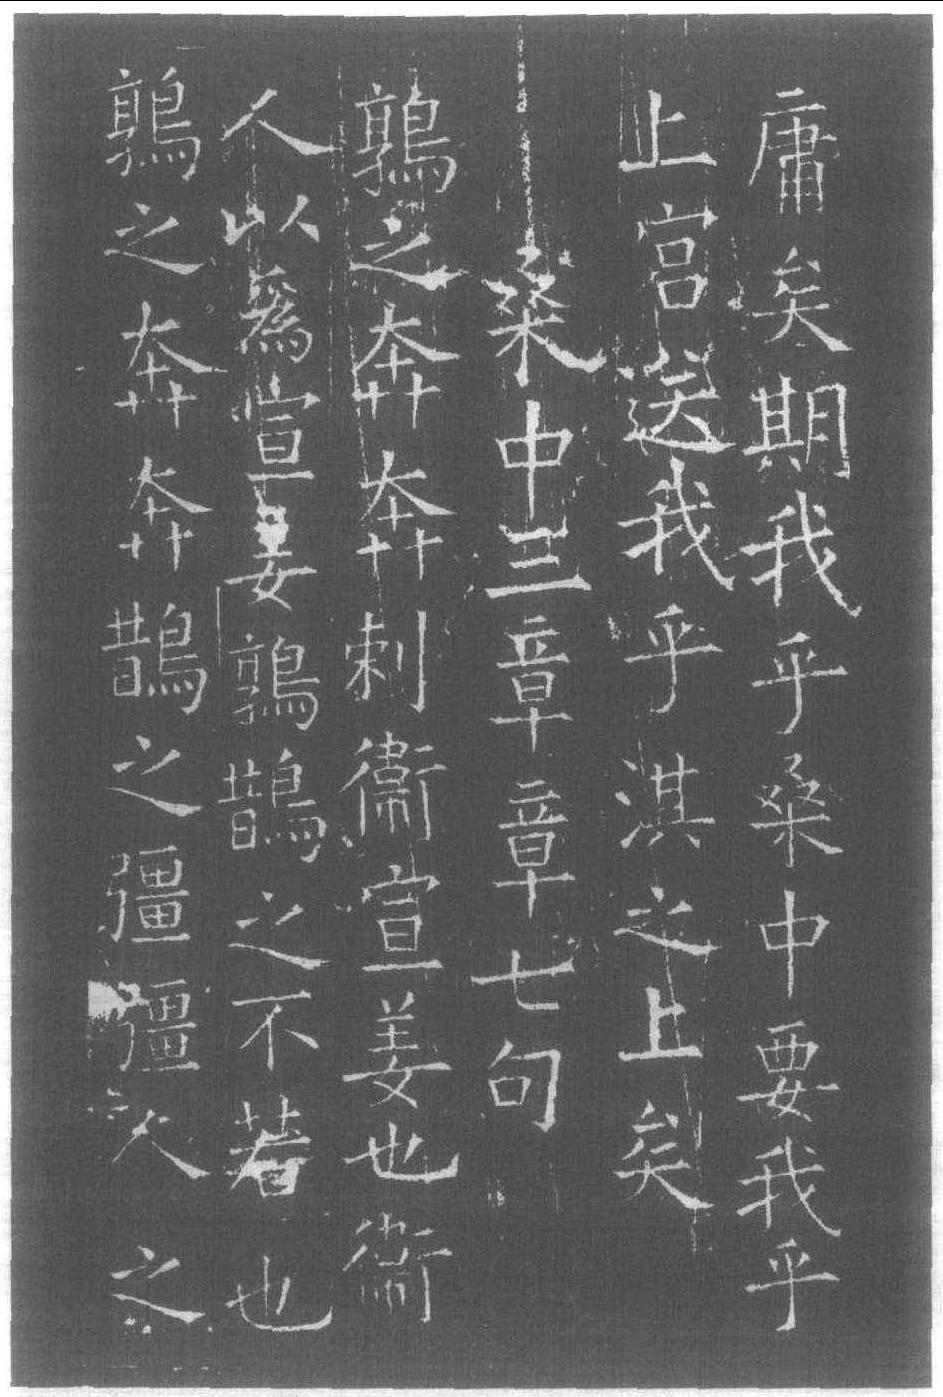 庸矣期我乎桑中要我乎
上宫送我乎淇之上矣
桒中三章章七句
鶉之奔奔刺衛宣姜也衛
人以爲宣姜鶉鵲之不若也
鶉之奔奔鵲之彊彊人之